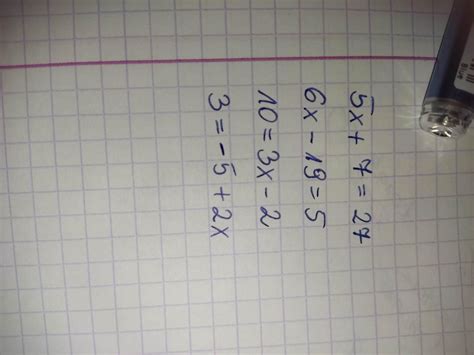 5x + 7 = 27
6x - 19 = 5
10 = 3x - 2
3 = -5 + 2x